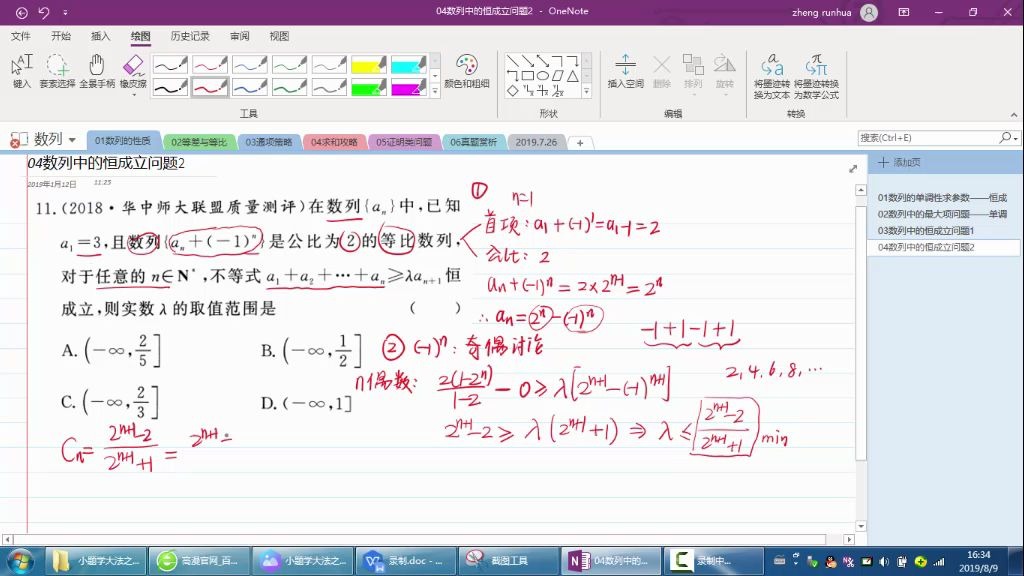 04数列中的恒成立问题2 - OneNote
zheng runhua
文件 开始 插入 绘图 历史记录 审阅 视图
键入 套索选择 全景手柄 橡皮擦 颜色和粗细 插入空间 删除 排列 旋转 将墨迹转换为文本 将墨迹转换为数学公式
工具 形状 编辑 转换
数列 01数列的性质 02等差与等比 03通项策略 04求和攻略 05证明类问题 06真题赏析 2019.7.26 +
搜索(Ctrl+E)
添加页
01数列的单调性求参数——恒成
02数列中的最大项问题——单调
03数列中的恒成立问题1
04数列中的恒成立问题2
04数列中的恒成立问题2
2019年1月12日 11:25
11.(2018·华中师大联盟质量测评)在数列{aₙ}中,已知
a₁=3,且数列{aₙ+(-1)ⁿ}是公比为2的等比数列,
对于任意的 n∈N*,不等式 a₁+a₂+…+aₙ≥λaₙ₊₁恒
成立,则实数 λ 的取值范围是 ( )
A. (-∞, 2/5]
B. (-∞, 1/2]
C. (-∞, 2/3]
D. (-∞,1]
① n=1
首项: a₁+(-1)¹=a₁-1=2
公比: 2
aₙ+(-1)ⁿ=2×2ⁿ⁻¹=2ⁿ
∴aₙ=2ⁿ-(-1)ⁿ
-1+1-1+1
② (-1)ⁿ: 奇偶讨论
2,4,6,8,…
n偶数: 2(1-2ⁿ)/1-2 - 0≥λ[2ⁿ⁺¹-(-1)ⁿ⁺¹]
2ⁿ⁺¹-2≥λ(2ⁿ⁺¹+1)⇒λ≤[2ⁿ⁺¹-2/2ⁿ⁺¹+1]min
Cₙ= 2ⁿ⁺¹-2/2ⁿ⁺¹+1 = 2ⁿ⁺¹
小题学大法之... 高漫官网_百... 小题学大法之... 录制.doc -... 截图工具 04数列中的... 录制中...
16:34
2019/8/9